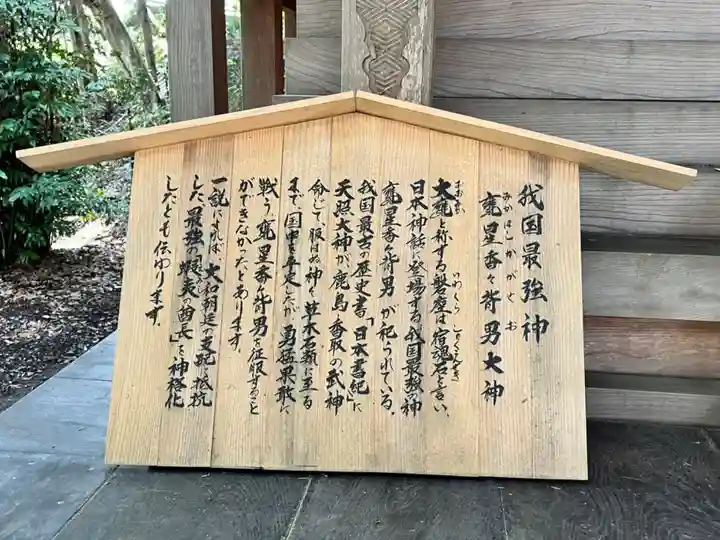 我国最強神
甕星香々背男大神
みかほしかがせお
大甕と称する磐座は宿魂石と言い、
おおみか
いわくら
しゅくこんせき
日本神話に登場する我国最強の神
甕星香々背男が祀られている。
我国最古の歴史書「日本書紀」に
天照大神が鹿島香取の武神
命じて、服はぬ神を草木石類に至る
まで国中を平定したが勇猛果敢に
戦う甕星香々背男を征服すること
ができなかったとあります。
一説によれば、大和朝廷の支配に抵抗
した最強の「蝦夷の酋長」を神格化
したとも伝わります。